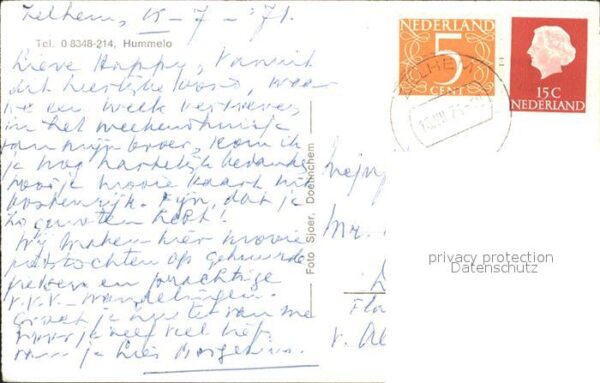 Zelhem, 15-7-'71.
Tel. 0 8348-214, Hummelo
Lieve Happy, Vanuit
dit heerlijke oord, waar
een week
in het weekendhuisje
van mijn broer, kom ik
je nog hartelijk bedanken
voor je mooie kaart uit
Oostenrijk. Fijn, dat je
zo genoten hebt!
Wij maken hier mooie
fietstochten op gehuurde
fietsen en prachtige
V.V.V. wandelingen.
je zuster van me
je
je
Foto Sjoer, Doetinchem
NEDERLAND
5
CENT
15C
NEDERLAND
ZELHEM
Mejn
Mr.
Fla
v. Al
privacy protection
Datenschutz